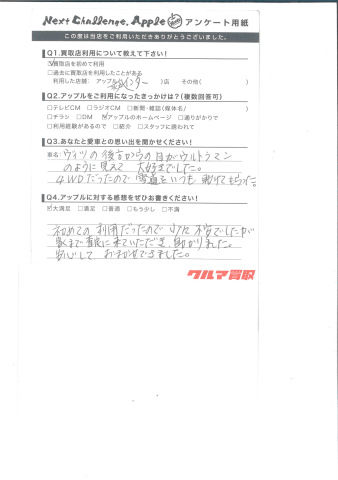 Next Challenge. Apple アンケート用紙
この度は当店をご利用いただきありがとうございました。
Q1.買取店利用について教えて下さい！
☑買取店を初めて利用
□過去に買取店を利用したことがある
利用した店舗: アップル( )店 その他( )
Q2.アップルをご利用になったきっかけは？(複数回答可)
□テレビCM □ラジオCM □新聞・雑誌(媒体名/ )
□チラシ □DM ☑アップルのホームページ □通りがかりで
□利用経験があるので □紹介 □スタッフに誘われて
Q3.あなたと愛車との思い出を聞かせください！
車名: ヴィッツの後方からの目がウルトラマン
のように見えて 大好きでした。
4WDだったので 雪道をいつも 助けてもらった。
Q4.アップルに対する感想をぜひお書きください！
☑大満足 □満足 □普通 □もう少し □不満
初めての利用だったので 少々不安でしたが
家まで査定に来ていただき、助かりました。
安心して おまかせできました。
クルマ買取